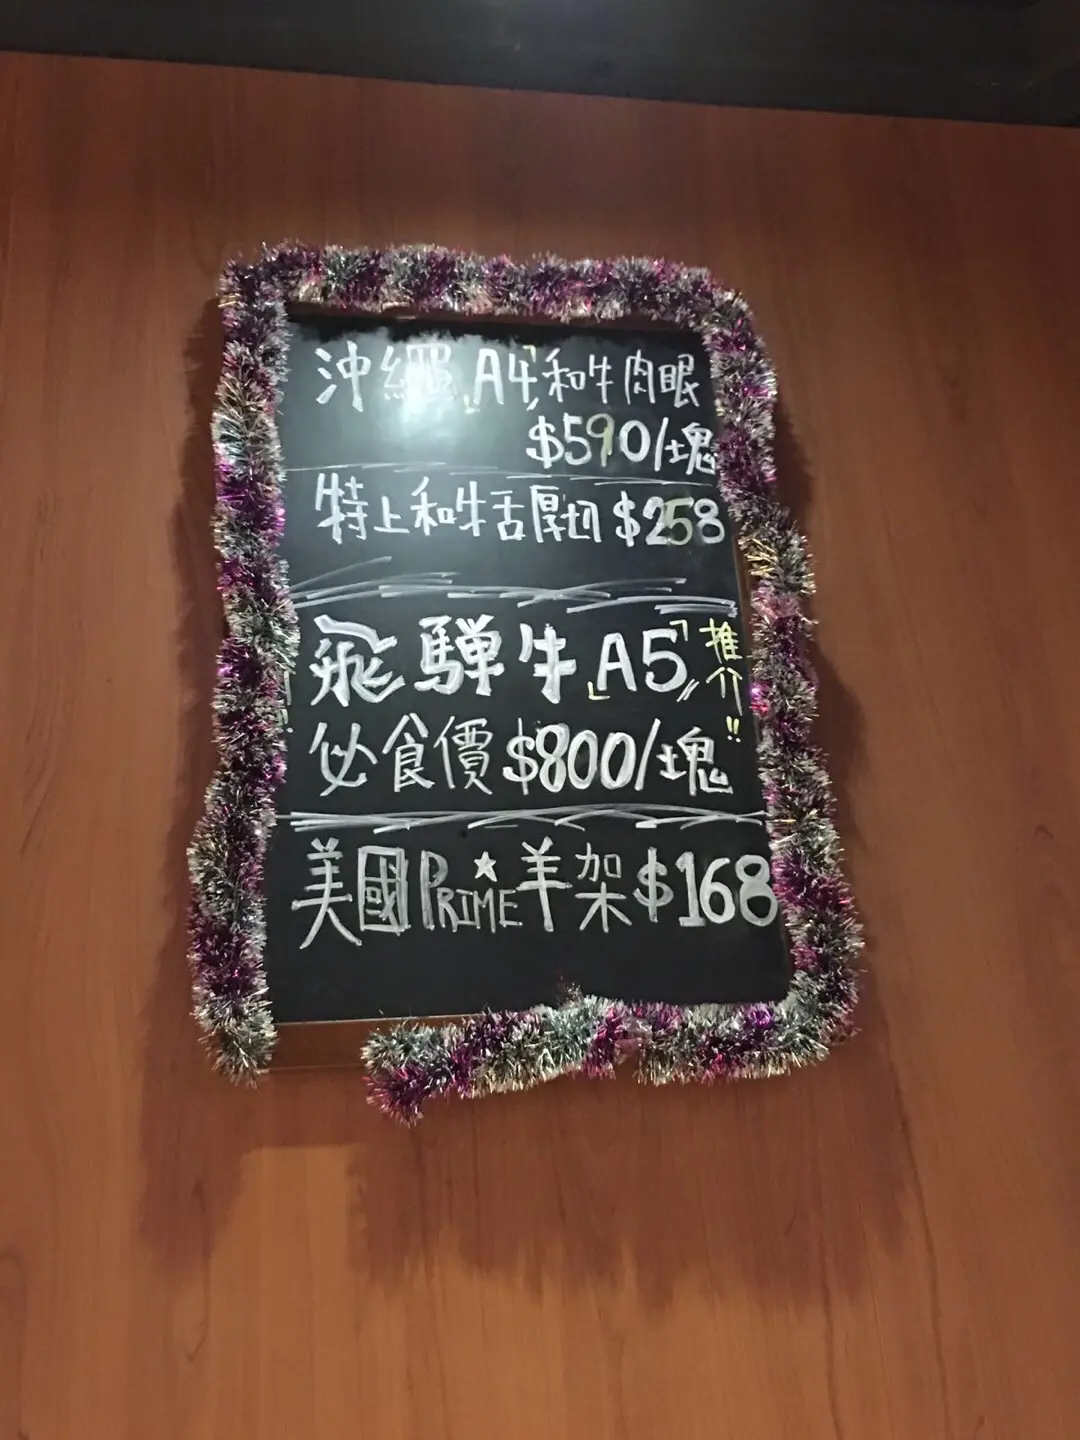 沖繩「A4」和牛肉眼
$590/塊
特上和牛舌厚切 $258
飛驒牛「A5」推介!!
必食價 $800/塊
美國PRIME羊架 $168